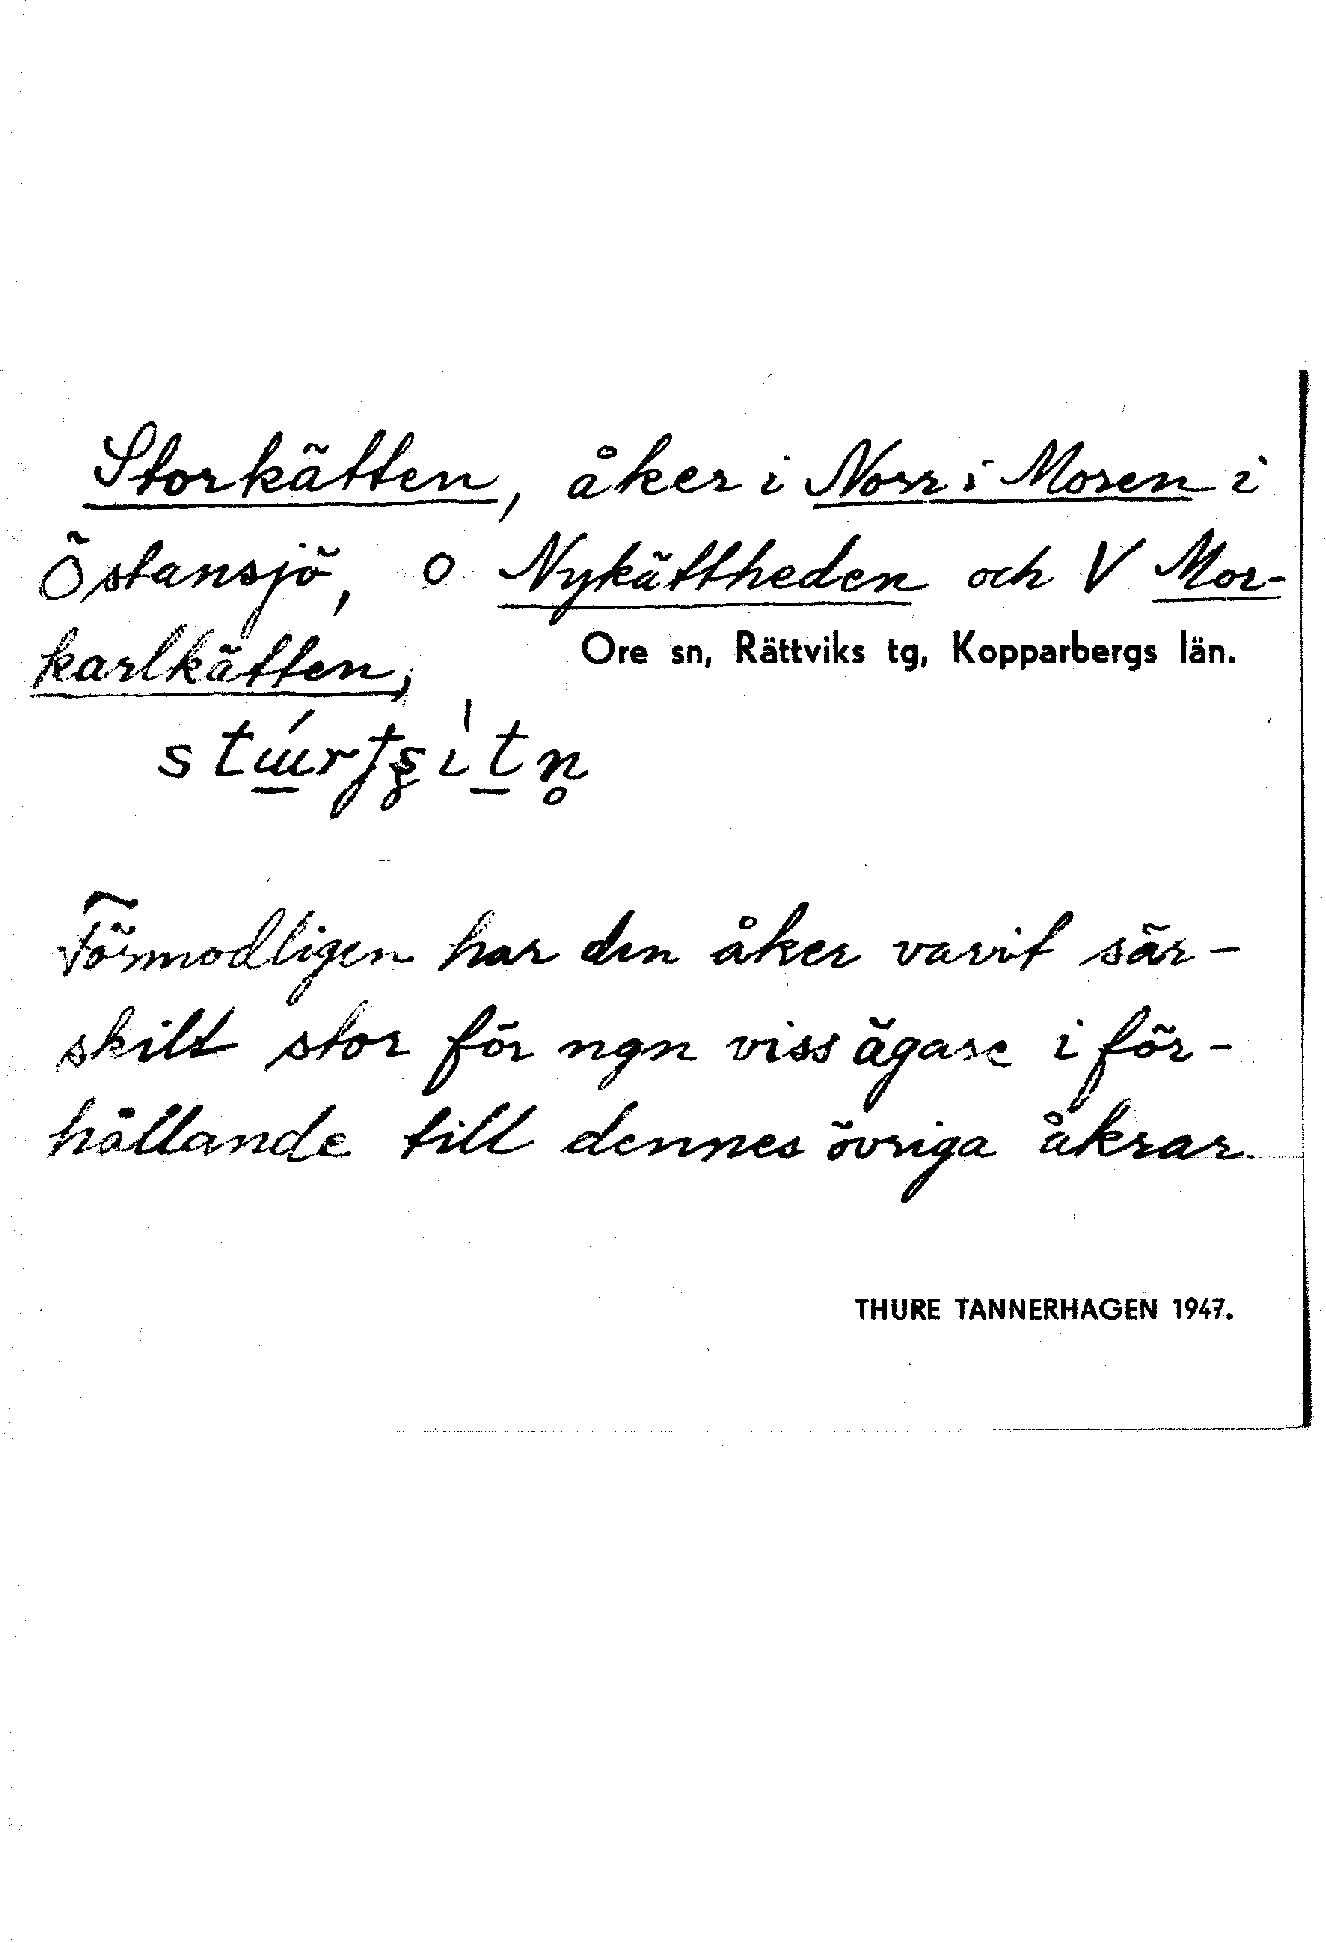 Storkätten, åker i Norr i Moren i
Östansjö, O Nykättheden och V Mor-
karlkätten,
Ore sn, Rättviks tg, Kopparbergs län.
Förmodligen har den åker varit sär-
skilt stor för ngn viss ägare i för-
hållande till dennes övriga åkrar.
THURE TANNERHAGEN 1947.